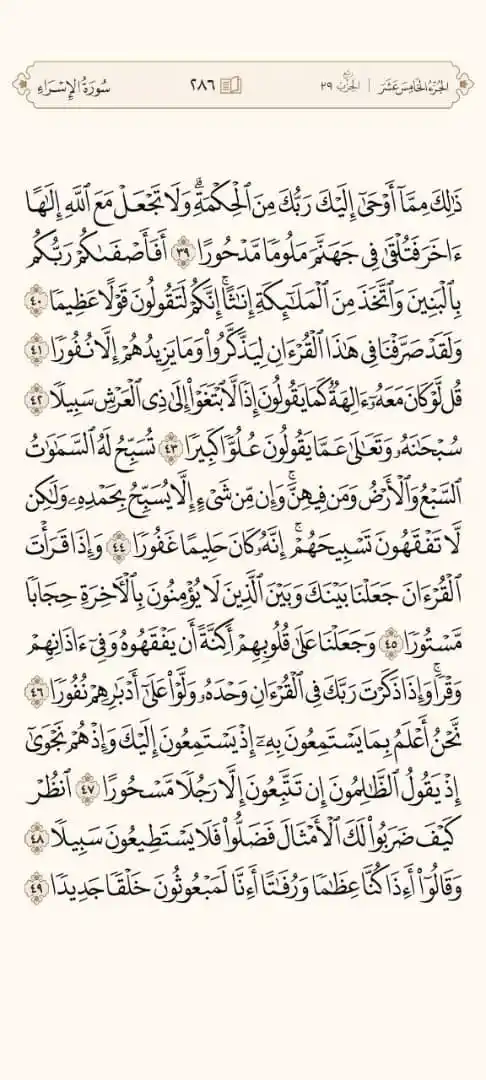 الجزء الخامس عشر | الحزب ٢٩ ٢٨٦ سورة الإسراء
ذَٰلِكَ مِمَّآ أَوْحَىٰٓ إِلَيْكَ رَبُّكَ مِنَ ٱلْحِكْمَةِۗ وَلَا تَجْعَلْ مَعَ ٱللَّهِ إِلَٰهًا
ءَاخَرَ فَتُلْقَىٰ فِى جَهَنَّمَ مَلُومًا مَّدْحُورًا ٣٩ أَفَأَصْفَىٰكُمْ رَبُّكُم
بِٱلْبَنِينَ وَٱتَّخَذَ مِنَ ٱلْمَلَٰٓئِكَةِ إِنَٰثًاۚ إِنَّكُمْ لَتَقُولُونَ قَوْلًا عَظِيمًا ٤٠
وَلَقَدْ صَرَّفْنَا فِى هَٰذَا ٱلْقُرْءَانِ لِيَذَّكَّرُوا۟ وَمَا يَزِيدُهُمْ إِلَّا نُفُورًا ٤١
قُل لَّوْ كَانَ مَعَهُۥٓ ءَالِهَةٌ كَمَا يَقُولُونَ إِذًا لَّٱبْتَغَوْا۟ إِلَىٰ ذِى ٱلْعَرْشِ سَبِيلًا ٤٢
سُبْحَٰنَهُۥ وَتَعَٰلَىٰ عَمَّا يَقُولُونَ عُلُوًّا كَبِيرًا ٤٣ تُسَبِّحُ لَهُ ٱلسَّمَٰوَٰتُ
ٱلسَّبْعُ وَٱلْأَرْضُ وَمَن فِيهِنَّۚ وَإِن مِّن شَىْءٍ إِلَّا يُسَبِّحُ بِحَمْدِهِۦ وَلَٰكِن
لَّا تَفْقَهُونَ تَسْبِيحَهُمْۚ إِنَّهُۥ كَانَ حَلِيمًا غَفُورًا ٤٤ وَإِذَا قَرَأْتَ
ٱلْقُرْءَانَ جَعَلْنَا بَيْنَكَ وَبَيْنَ ٱلَّذِينَ لَا يُؤْمِنُونَ بِٱلْءَاخِرَةِ حِجَابًا
مَّسْتُورًا ٤٥ وَجَعَلْنَا عَلَىٰ قُلُوبِهِمْ أَكِنَّةً أَن يَفْقَهُوهُ وَفِىٓ ءَاذَانِهِمْ
وَقْرًاۚ وَإِذَا ذَكَرْتَ رَبَّكَ فِى ٱلْقُرْءَانِ وَحْدَهُۥ وَلَّوْا۟ عَلَىٰٓ أَدْبَٰرِهِمْ نُفُورًا ٤٦
نَّحْنُ أَعْلَمُ بِمَا يَسْتَمِعُونَ بِهِۦٓ إِذْ يَسْتَمِعُونَ إِلَيْكَ وَإِذْ هُمْ نَجْوَىٰٓ
إِذْ يَقُولُ ٱلظَّٰلِمُونَ إِن تَتَّبِعُونَ إِلَّا رَجُلًا مَّسْحُورًا ٤٧ ٱنظُرْ
كَيْفَ ضَرَبُوا۟ لَكَ ٱلْأَمْثَالَ فَضَلُّوا۟ فَلَا يَسْتَطِيعُونَ سَبِيلًا ٤٨
وَقَالُوٓا۟ أَءِذَا كُنَّا عِظَٰمًا وَرُفَٰتًا أَءِنَّا لَمَبْعُوثُونَ خَلْقًا جَدِيدًا ٤٩